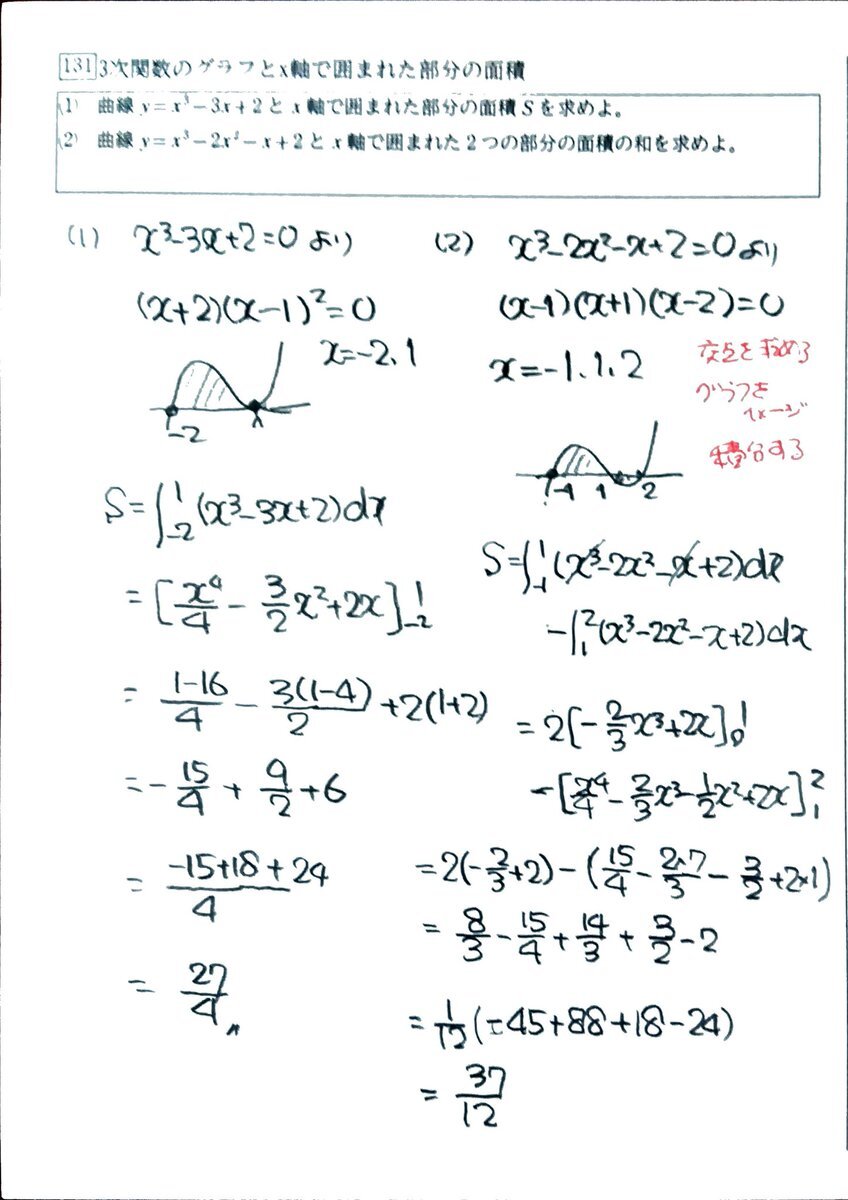 131 3次関数のグラフとx軸で囲まれた部分の面積
(1) 曲線 y=x³−3x+2 と x 軸で囲まれた部分の面積 S を求めよ。
(2) 曲線 y=x³−2x²−x+2 と x 軸で囲まれた 2 つの部分の面積の和を求めよ。
(1) x³−3x+2=0 より
(x+2)(x−1)²=0
x=−2.1
−2 1
S=∫₋₂¹(x³−3x+2)dx
=[x⁴/4 − 3/2x²+2x]₋₂¹
= (1−16)/4 − 3(1−4)/2 +2(1+2)
=−15/4 + 9/2 +6
= (−15+18+24)/4
= 27/4〃
(2) x³−2x²−x+2=0 より
(x−1)(x+1)(x−2)=0
x=−1.1.2
交点を求める
グラフを
イメージ
積分する
−1 1 2
S=∫₋₁¹(x³−2x²−x+2)dx
−∫₁²(x³−2x²−x+2)dx
=2[−2/3x³+2x]₀¹
−[x⁴/4−2/3x³−1/2x²+2x]₁²
=2(−2/3+2)−(15/4−2×7/3−3/2+2×1)
= 8/3−15/4+14/3+3/2−2
= 1/12(−45+88+18−24)
= 37/12